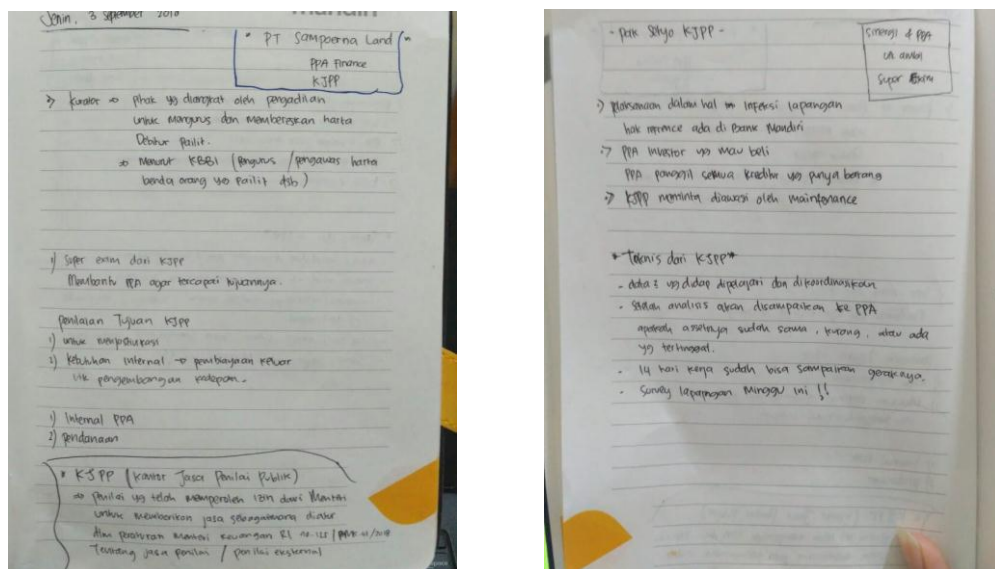 Senin, 3 September 2018
mandiri
* PT Sampoerna Land *
PPA Finance
KJPP
=> kurator => Pihak yg diangkat oleh pengadilan
untuk Mengurus dan Membereskan harta
Debitur Pailit.
=> Menurut KBBI (Pengurus / pengawas harta
benda orang yg pailit dsb)
1) Super exim dari KJPP
Membantu PPA agar tercapai tujuannya.
penilaian Tujuan KJPP
1) untuk
2) Kebutuhan Internal -> pembiayaan keluar
utk pengembangan kedepan.
1) Internal PPA
2) pendanaan
* KJPP (Kantor Jasa Penilai Publik)
=> penilai yg telah memperoleh izin dari Menteri
untuk memberikan jasa sebagaimana diatur
dlm peraturan Menteri Keuangan RI no.
Tentang jasa penilai / penilai eksternal
- pak Setyo KJPP -
Sinergi & PPA
Super Exim
=> pelaksanaan dalam hal Infeksi lapangan
hak ada di Bank Mandiri
=> PPA Investor yg mau beli
PPA panggil semua kreditur yg punya barang
=> KJPP meminta diawasi oleh maintenance
* Teknis dari KJPP *
- data2 yg didap dipelajari dan dikoordinasikan
- Setelah analisis akan disampaikan ke PPA
apakah assetnya sudah sama, kurang, atau ada
yg tertinggal.
- 14 hari kerja sudah bisa sampaikan geraknya.
- Survey lapangan Minggu ini !!